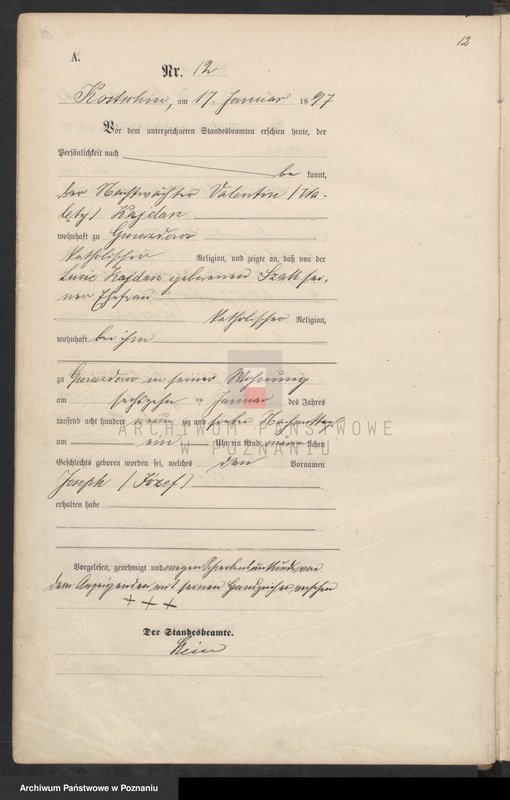 12
A.
Nr. 12
Kostschin, am 17. Januar 1897
Vor dem unterzeichneten Standesbeamten erschien heute, der
Persönlichkeit nach
be kannt,
der Nachtwächter Valentin (Wa-
lenty) Kajdan
wohnhaft zu Gwiazdowo
katholischer Religion, und zeigte an, daß von der
Lucie Kajdan geborenen Szak sei-
ner Ehefrau
katholischer Religion,
wohnhaft bei ihm
zu Gwiazdowo in seiner Wohnung
am sechszehn ten Januar des Jahres
tausend acht hundert neun zig und sieben Nachmittags
um ein Uhr ein Kind männ lichen
Geschlechts geboren worden sei, welches den Vornamen
Joseph (Józef)
erhalten habe
Vorgelesen, genehmigt und wegen Schreibensunkunde von
dem Anzeigenden mit seinem Handzeichen versehen
+ + +
Der Standesbeamte.
ARCHIWUM PAŃSTWOWE
W POZNANIU
Archiwum Państwowe w Poznaniu